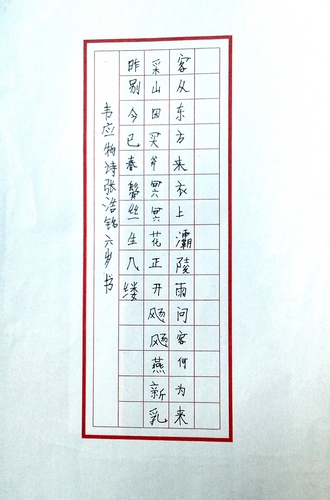 客从东方来衣上灞陵雨问客何为来
采山因买斧冥冥花正开飏飏燕新乳
昨别今已春鬓丝生几缕
韦应物诗张浩铭六岁书